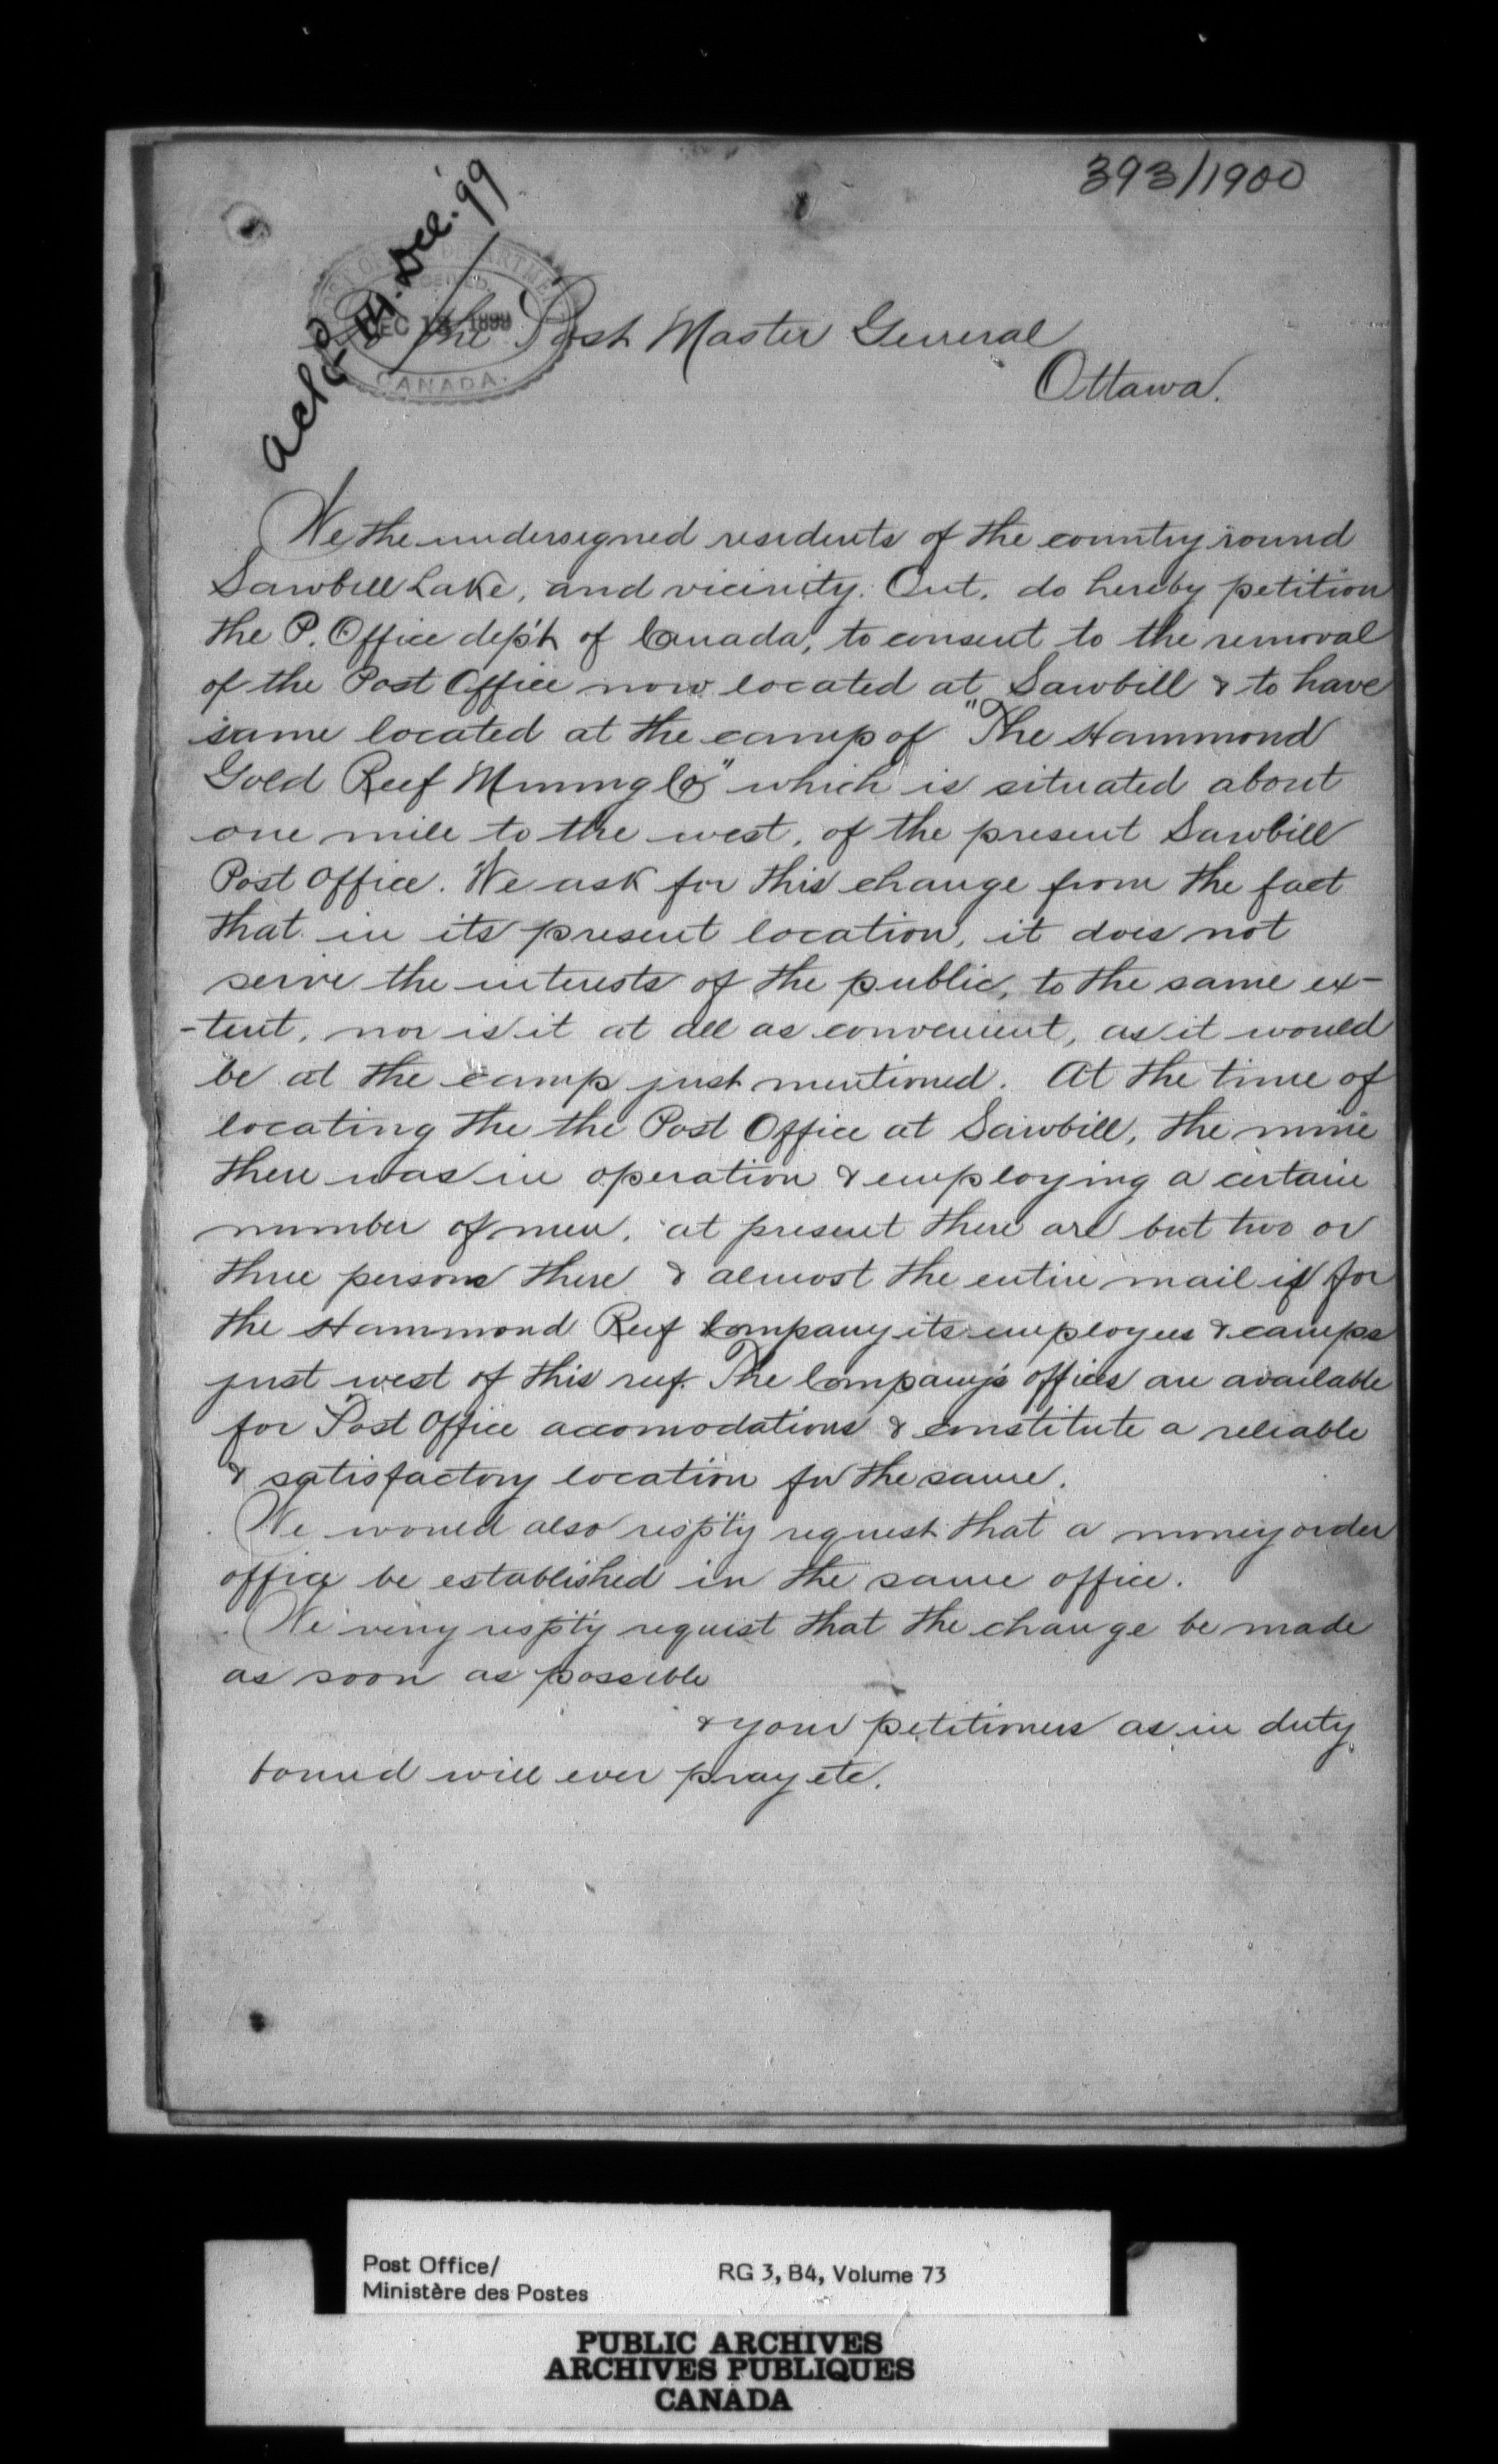 393/1900
ack'd 14. Dec. '99
POST OFFICE DEPARTMENT
RECEIVED
DEC 13 1899
CANADA.
To the Post Master General
Ottawa.
We the undersigned residents of the country round
Sawbill Lake, and vicinity. Ont. do hereby petition
the P. Office dep't of Canada, to consent to the removal
of the Post Office now located at Sawbill & to have
same located at the camp of "The Hammond
Gold Reef Mining Co" which is situated about
one mile to the west, of the present Sawbill
Post Office. We ask for this change from the fact
that in its present location, it does not
serve the interests of the public, to the same ex-
-tent, nor is it at all as convenient, as it would
be at the camp just mentioned. At the time of
locating the the Post Office at Sawbill, the mine
there was in operation & employing a certain
number of men, at present there are but two or
three persons there & almost the entire mail is for
the Hammond Reef Company its employees & camps
just west of this reef. The Company's offices are available
for Post Office accomodations & constitute a reliable
& satisfactory location for the same.
We would also respt'y request that a money order
office be established in the same office.
We very respt'y request that the change be made
as soon as possible
& your petitioners as in duty
bound will ever pray etc.
Post Office/
Ministère des Postes
RG 3, B4, Volume 73
PUBLIC ARCHIVES
ARCHIVES PUBLIQUES
CANADA